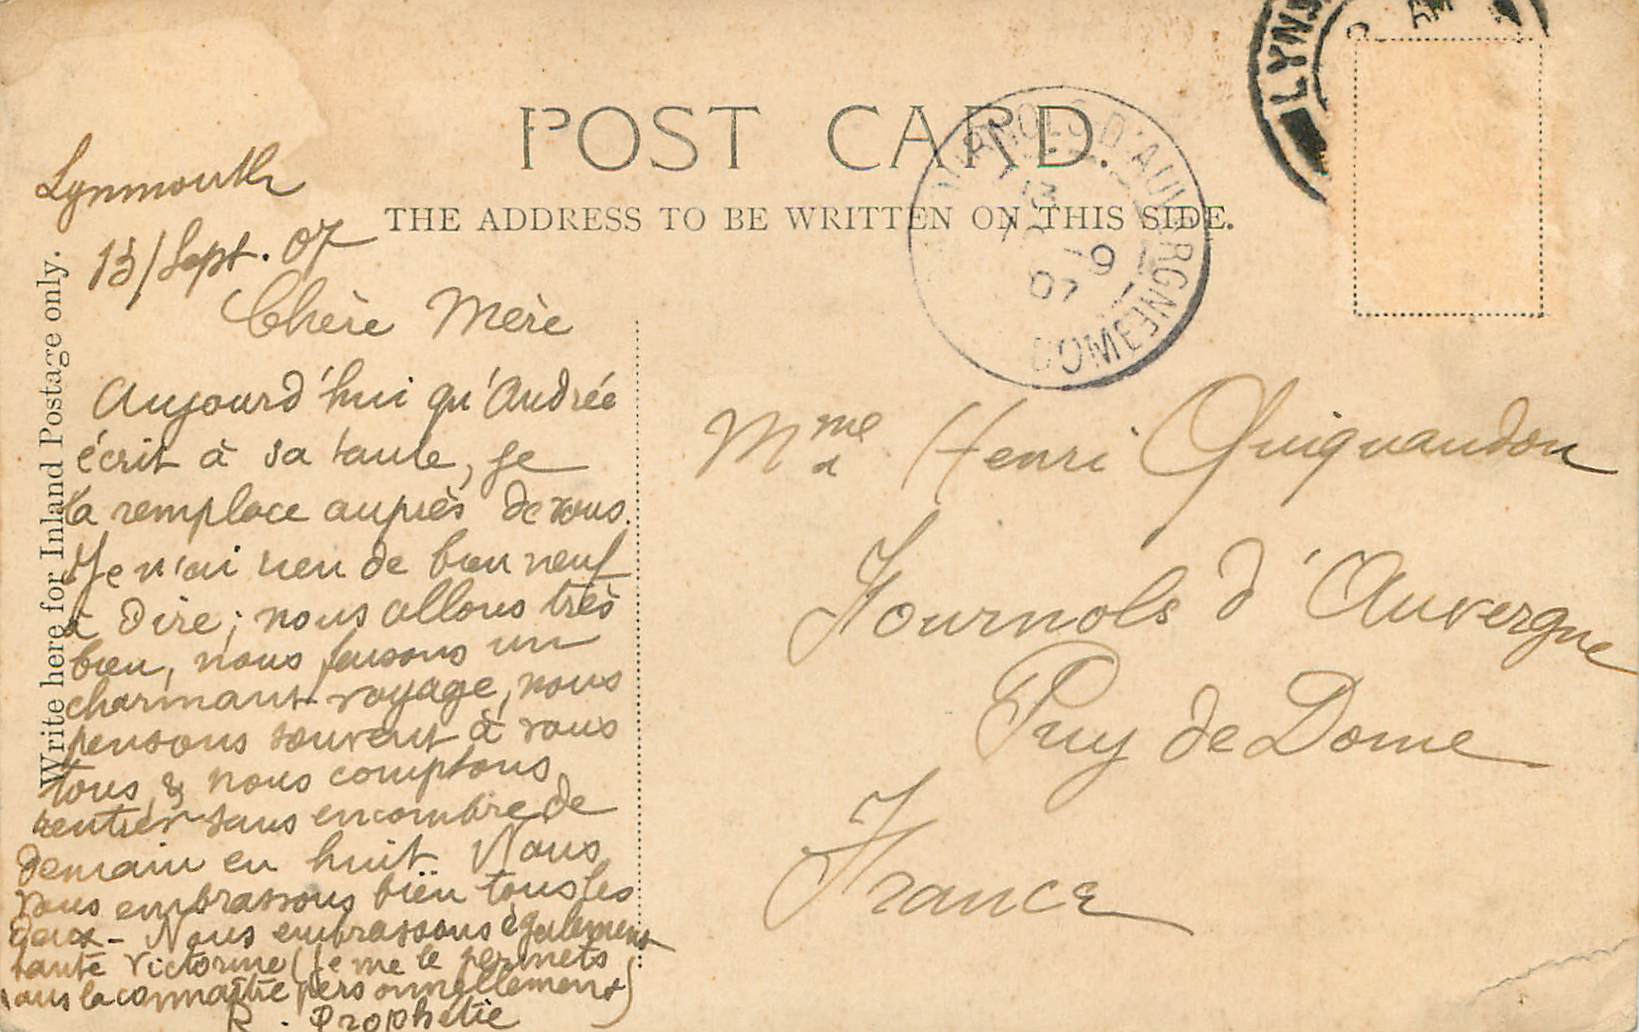 POST CARD.
THE ADDRESS TO BE WRITTEN ON THIS SIDE.
Write here for Inland Postage only.
LYN
AM
FOURNOLS-D'AUVERGNE
13
-9
07
DOME
Lynmouth
13/Sept. 07
Chère Mère
Aujourd'hui qu'Andrée
écrit à sa tante, je
la remplace auprès de vous.
Je n'ai rien de bien neuf
à dire; nous allons très
bien, nous faisons un
charmant voyage, nous
pensons souvent à vous
tous, & nous comptons
rentrer sans encombre de
demain en huit. Nous
vous embrassons bien tous les
deux - Nous embrassons également
tante Victorine (je me le permets
sans la connaître personnellement)
R. Prophétie
Mme Henri Quiquandon
à Fournols d'Auvergne
Puy de Dome
France